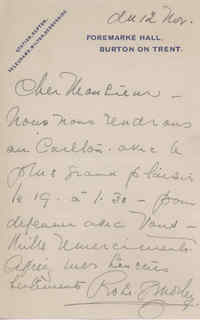 du 12 Nov.
STATION, REPTON.
TELEGRAMS, MILTON, DERBYSHIRE.
FOREMARKE HALL,
BURTON ON TRENT.
Cher Monsieur –
Nous nous rendrons
au Carlton avec le
plus grand plaisir
le 19. à 1.30 – pour
déjeuner avec Vous –
Mille remerciments
Agréez mes sincères
Sentiments